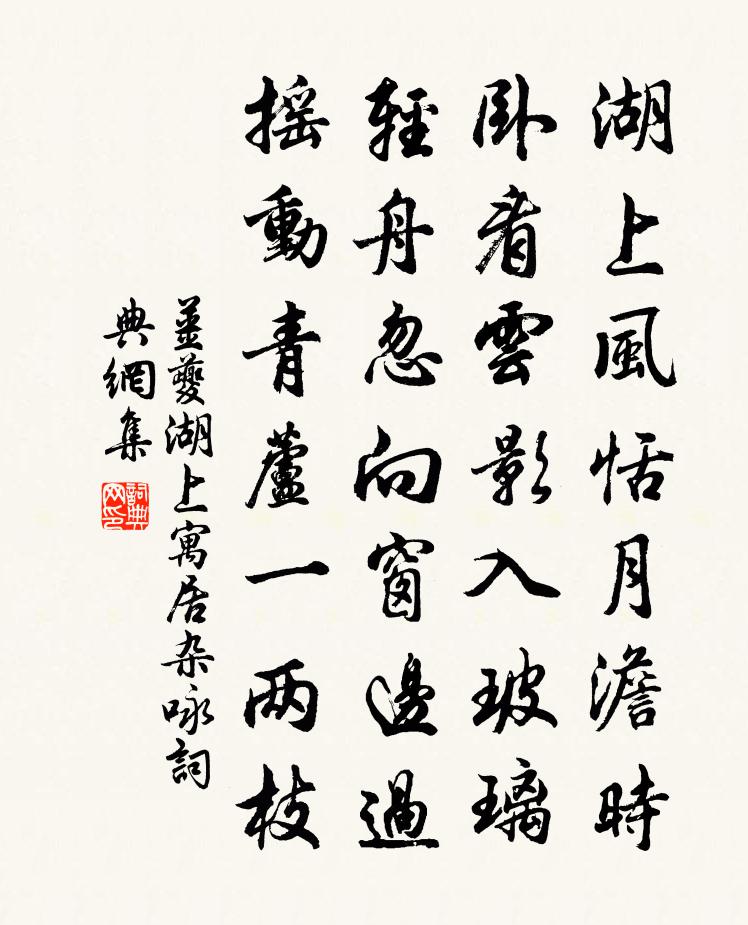 湖上風恬月澹時
卧看雲影入玻璃
輕舟忽向窗邊過
摇動青蘆一两枝
姜夔湖上寓居杂咏詞
典網集
詞典
网印